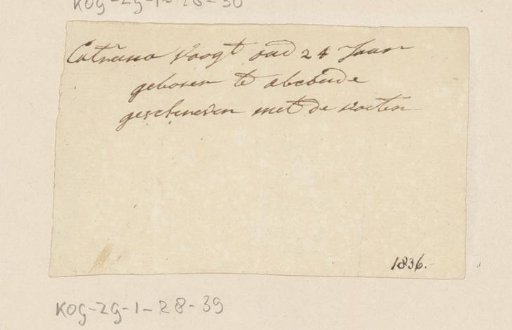 KOG-ZG-1-28-30
Catrina Voogt oud 24 Jaar
geboren te
geschreven met de voeten
1836.
KOG-ZG-1-28-39